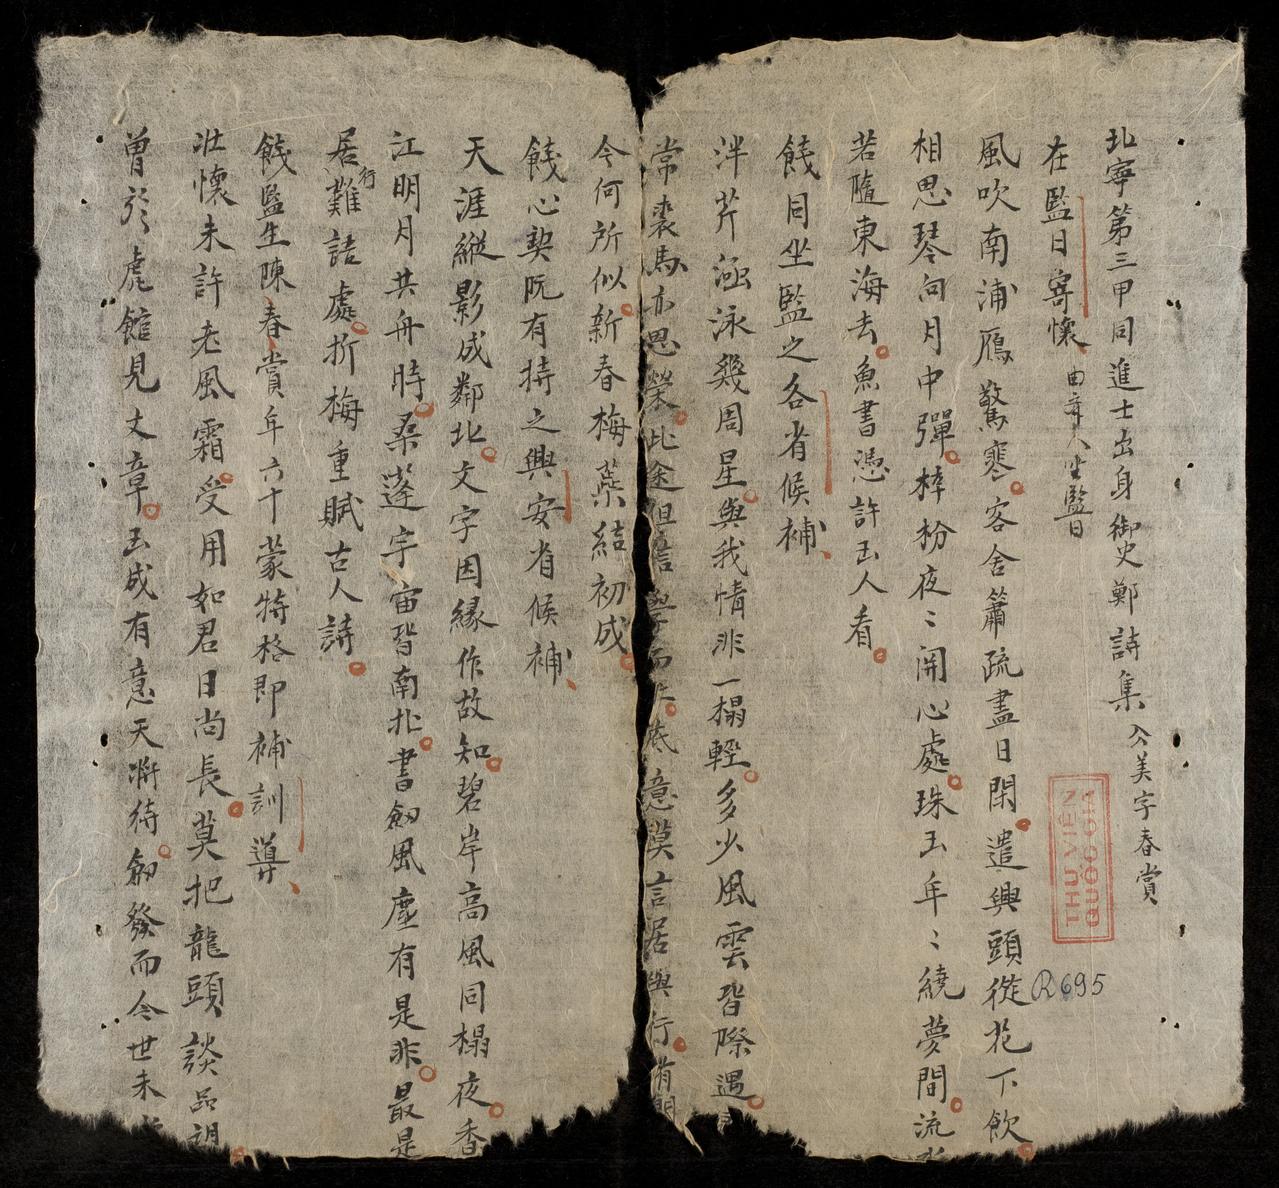 北寧第三甲同進士出身御史鄭詩集 公美字春賞
在監日寄懷 由 人坐監日
THƯ VIỆN
QUỐC GIA
R695
風吹南浦鴈驚寒客舍簫疏盡日閑遣興頭從花下飲
相思琴向月中彈梓枌夜〻開心處珠玉年〻繞夢間流水
若隨東海去魚書憑許玉人看
餞同坐監之各省候補
泮芹涵泳幾周星與我情非一榻輕多少風雲皆際遇
常裘馬亦思榮此途但 學而 底意莫言居與行
今何所似新春梅蘂結初成
餞心契阮有持之興安省候補
天涯縱影成鄰北文字因緣作故知碧岸高風同榻夜香
江明月共舟時桑蓬宇宙皆南北書劍風塵有是非最是
居行難詰處折梅重賦古人詩
餞監生陳春賞年六十蒙特格即補訓導
壯懷未許老風霜受用如君日尚長莫把龍頭談品調
曾於虎館見文章玉成有意天將待劍發而今世未